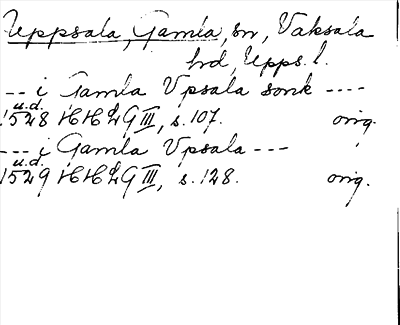 Uppsala, Gamla, sn, Vaksala
hd, Upps. l.
--- i Gamla Vpsala sonk ----
u.d.
1528 HH LG III, s. 107. orig.
--- i Gamla Vpsala ---
u.d.
1529 HH LG III, s. 128. orig.